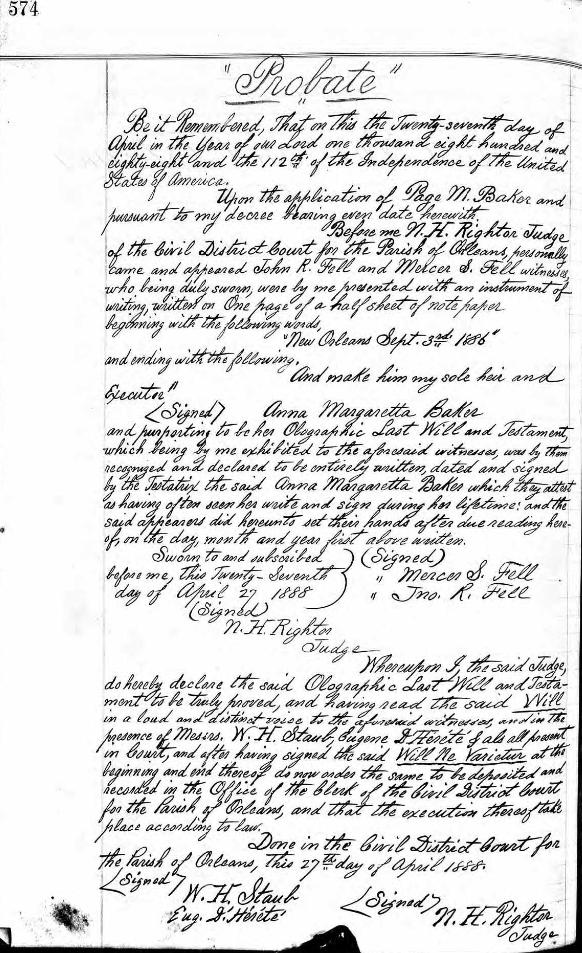 574
"Probate"
Be it Remembered, That on this the Twenty-seventh day of
April in the Year of our Lord one thousand eight hundred and
eighty-eight and the 112th of the Independence of the United
States of America.
Upon the application of Page M. Baker and
pursuant to my decree bearing even date herewith.
Before me N. H. Rightor Judge
of the Civil District Court for the Parish of Orleans, personally
came and appeared John R. Fell and Mercer S. Fell witnesses,
who being duly sworn, were by me presented with an instrument of
writing, written on One page of a half sheet of note paper
beginning with the following words,
"New Orleans Sept. 3rd 1886"
and ending with the following.
And make him my sole heir and
Executor"
(Signed) Anna Margaretta Baker
and purporting to be her Olographic Last Will and Testament,
which being by me exhibited to the aforesaid witnesses, was by them
recognized and declared to be entirely written, dated and signed
by the Testatrix the said Anna Margaretta Baker which they attest
as having often seen her write and sign during her lifetime: and the
said appearers did hereunto set their hands after due reading here-
of, on the day, month and year first above written.
Sworn to and subscribed (Signed)
before me, this Twenty-Seventh " Mercer S. Fell
day of April 27 1888 " Jno. R. Fell
(Signed)
N. H. Rightor
Judge
Whereupon I, the said Judge,
do hereby declare the said Olographic Last Will and Testa-
ment to be truly proved, and having read the said Will
in a loud and distinct voice to the aforesaid witnesses, and in the
presence of Messrs. W. H. Staub, Eugene D'Hérété & als all present
in Court, and after having signed the said Will Ne Varietur at the
beginning and end thereof do now order the same to be deposited and
recorded in the Office of the Clerk of the Civil District Court
for the Parish of Orleans, and that the execution thereof take
place according to law.
Done in the Civil District Court for
the Parish of Orleans, this 27th day of April 1888.
(Signed) (Signed)
W. H. Staub N. H. Rightor
Eug. D'Hérété Judge